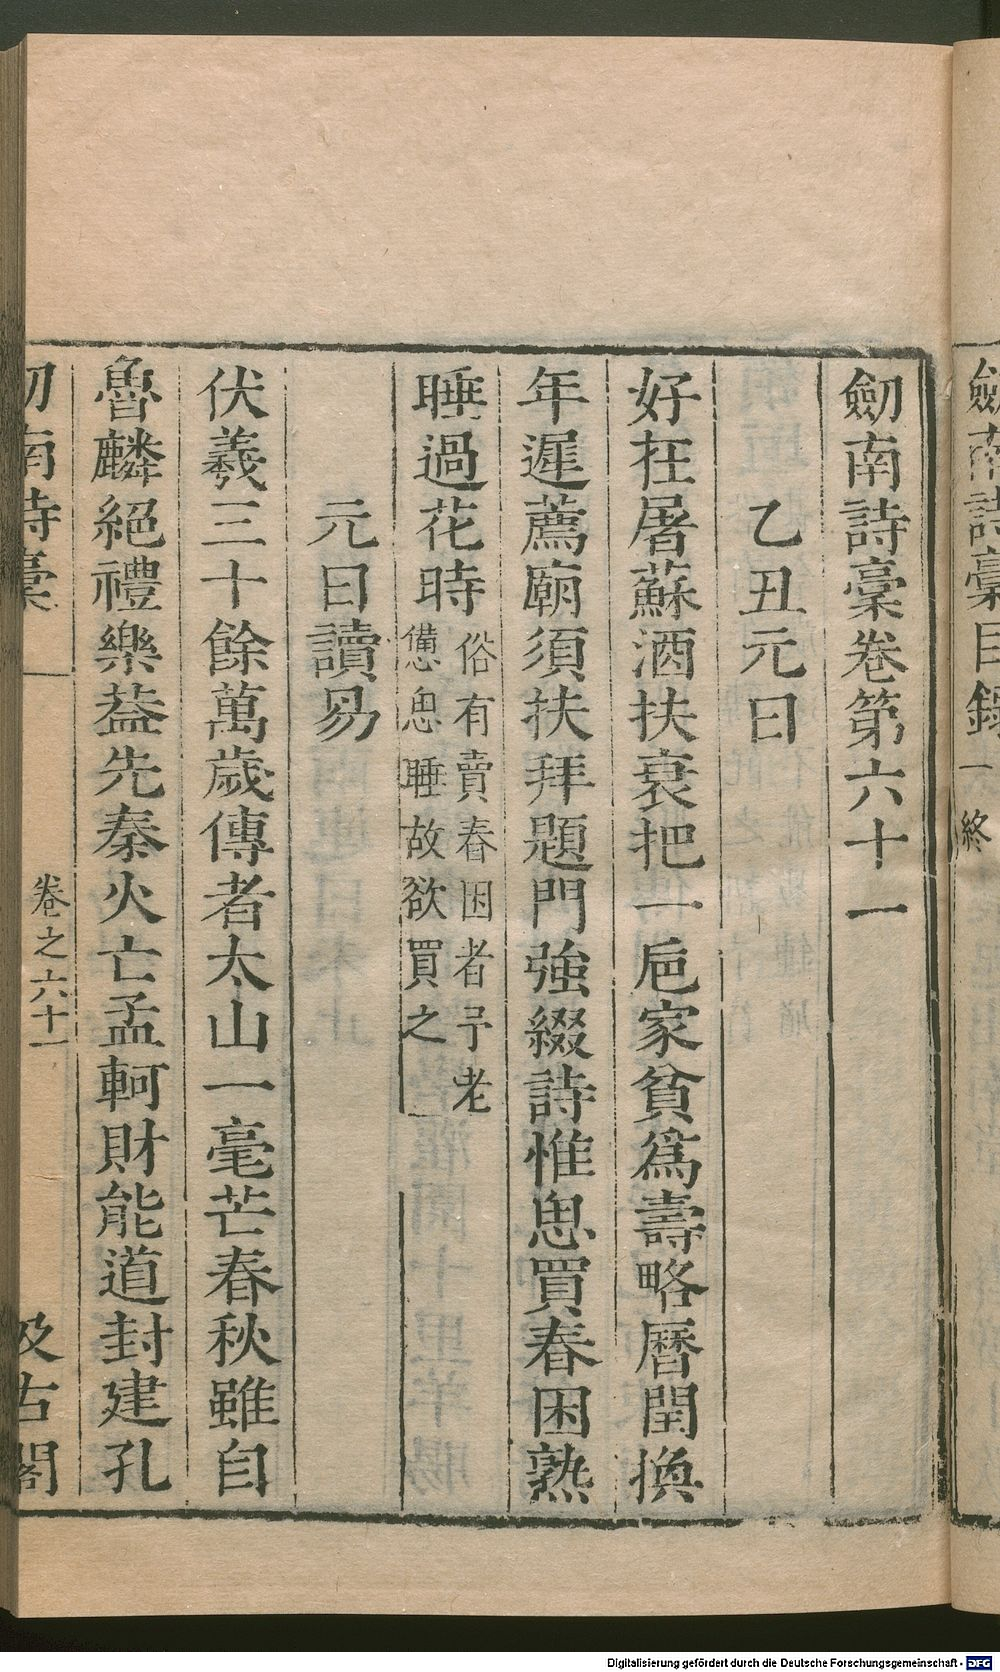 劒南詩稾目錄一終
劒南詩稾卷第六十一
乙丑元日
好在屠蘇酒扶衰把一巵家貧爲壽略曆閏換
年遲薦廟須扶拜題門強綴詩惟思買春困熟
睡過花時俗有賣春困者予老
備思睡故欲買之
元日讀易
伏羲三十餘萬歲傳者太山一毫芒春秋雖自
魯麟絕禮樂葢先秦火亡孟軻財能道封建孔
南詩稾 卷之六十一 及古閣
Digitalisierung gefördert durch die Deutsche Forschungsgemeinschaft - DFG